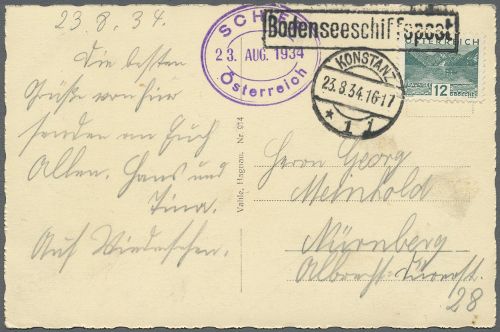 23.8.34.
Die besten
Grüße von hier
senden an Euch
Allen. Hans und
Tina.
Auf Wiedersehen.
SCHIFF
23. AUG. 1934
Österreich
Bodenseeschiffspost
KONSTANZ
23.8.34.16-17
* 1 1
ÖSTERREICH
12
GROSCHEN
Vahle, Hagnau. Nr. 914
Herrn Georg
Meinhold
Nürnberg
Albrecht-Dürerst.
28